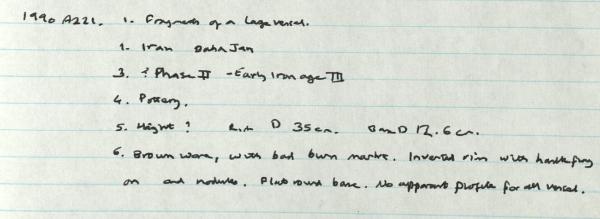 1990 A221. 1. Fragments of a large vessel.
2. Iran Baba Jan
3. ? Phase II - Early Iron age III
4. Pottery.
5. Height? Rim D 35cm. Base D 12.6cm.
6. Brown ware, with bad burn marks. Inverted rim with handle
on and nodules. Flat round base. No apparent profile for all vessel.